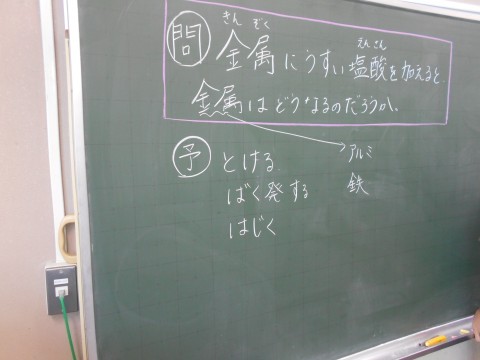 問 金属にうすい塩酸を加えると、
きんぞく えんさん
金属はどうなるのだろうか。
予 とける アルミ
ばく発する 鉄
はじく